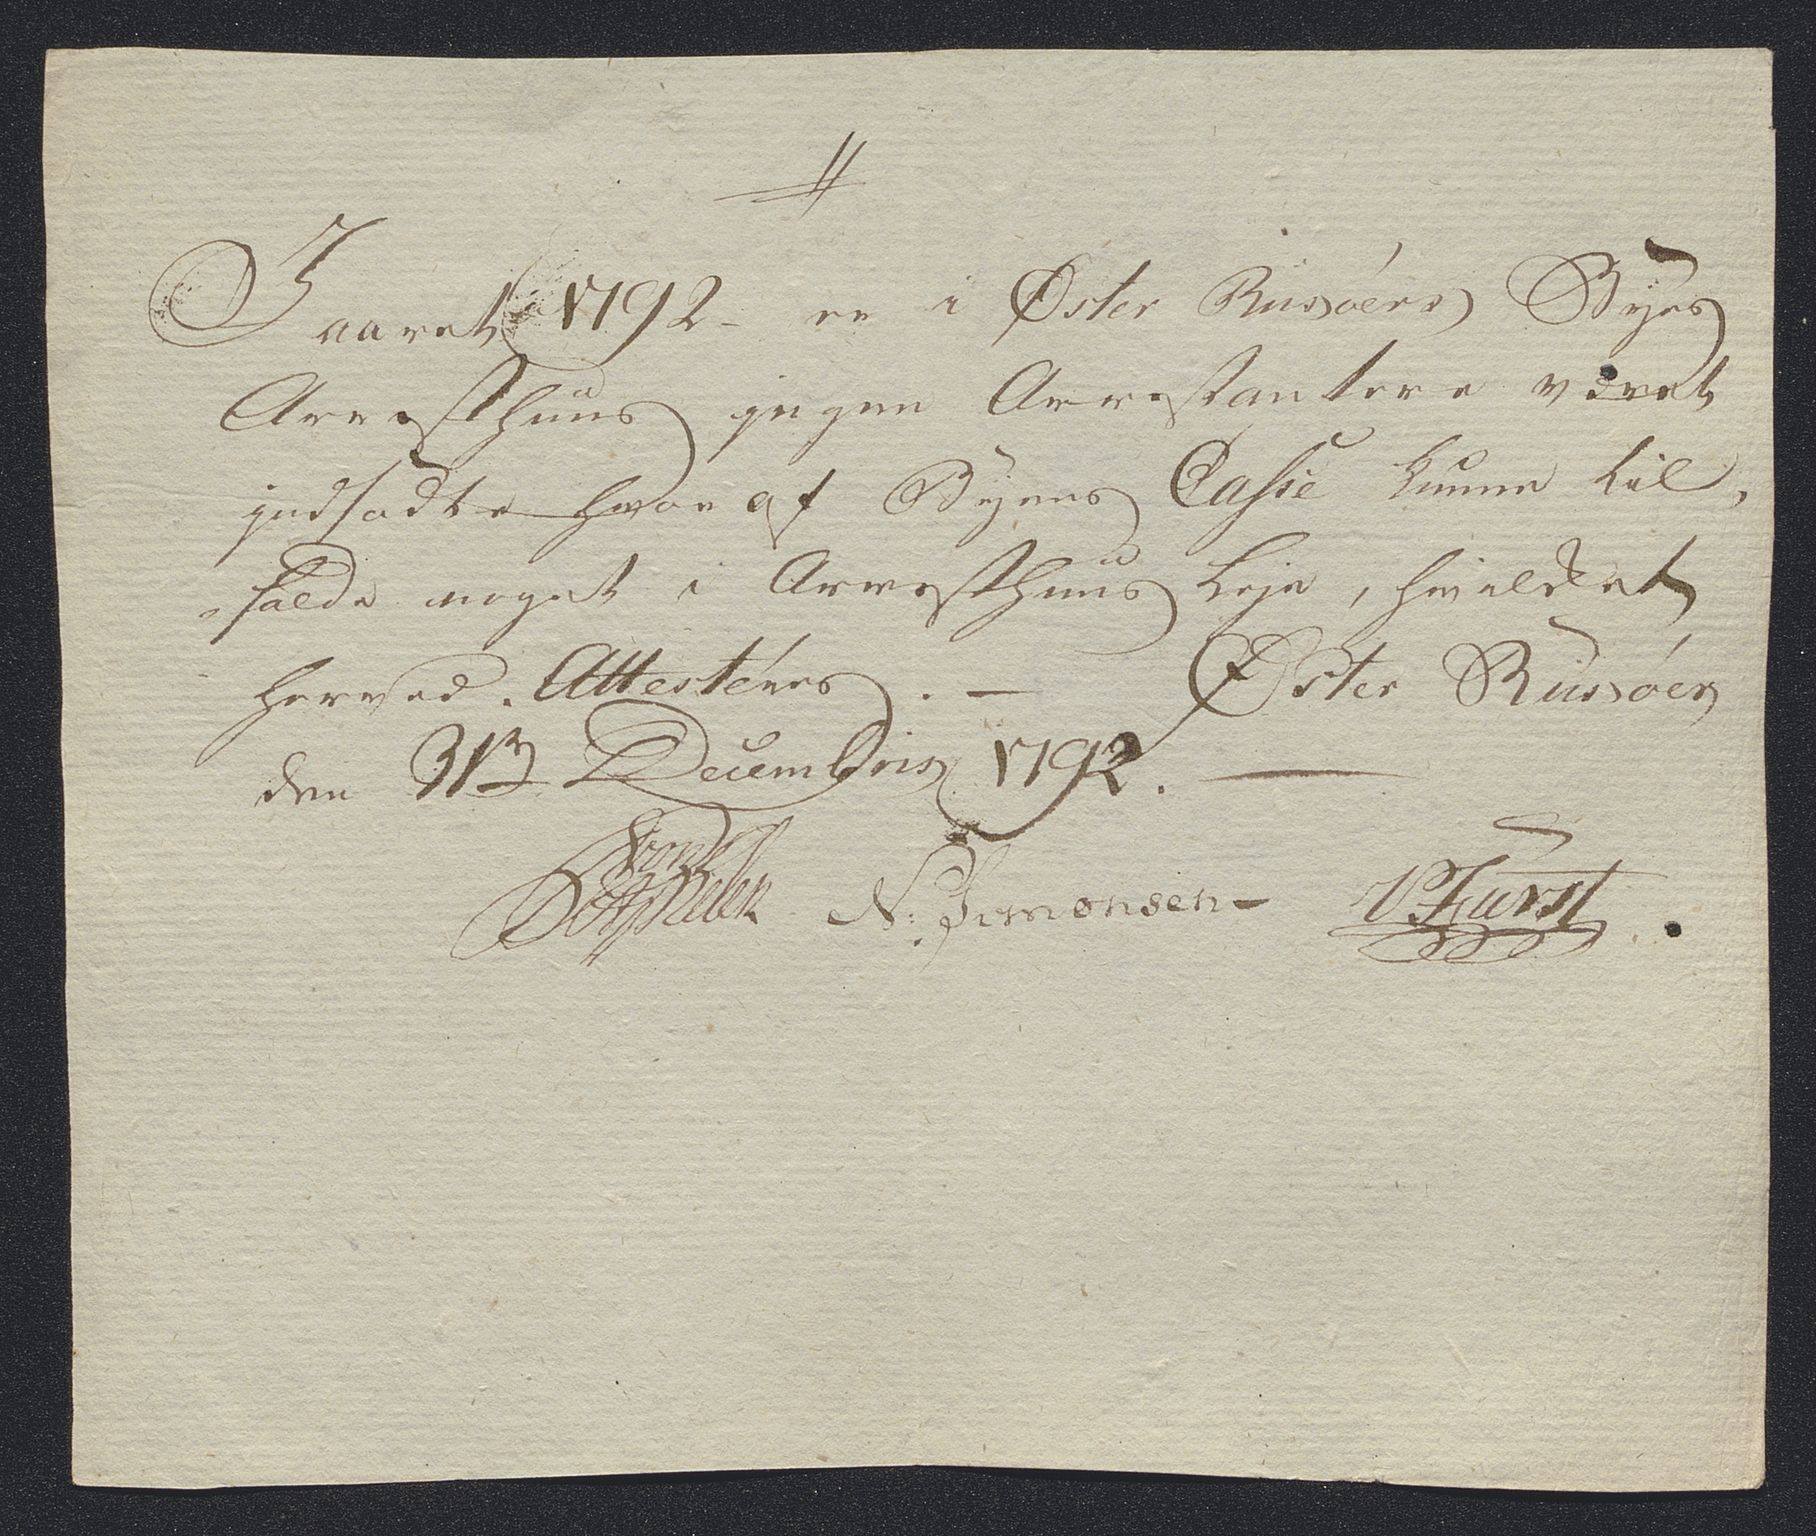 I aaret 1792 - er i Øster Riisøers Byes
Arresthuus ingen Arrestantere været
indsadte hvor af Byens Casse kunne til,
falde noget i Arresthuus Leje, hvilket
herved Attesteres. - Øster Riisøer
den 31te Decembris 1792.
N: Simonsen - V. Fürst.